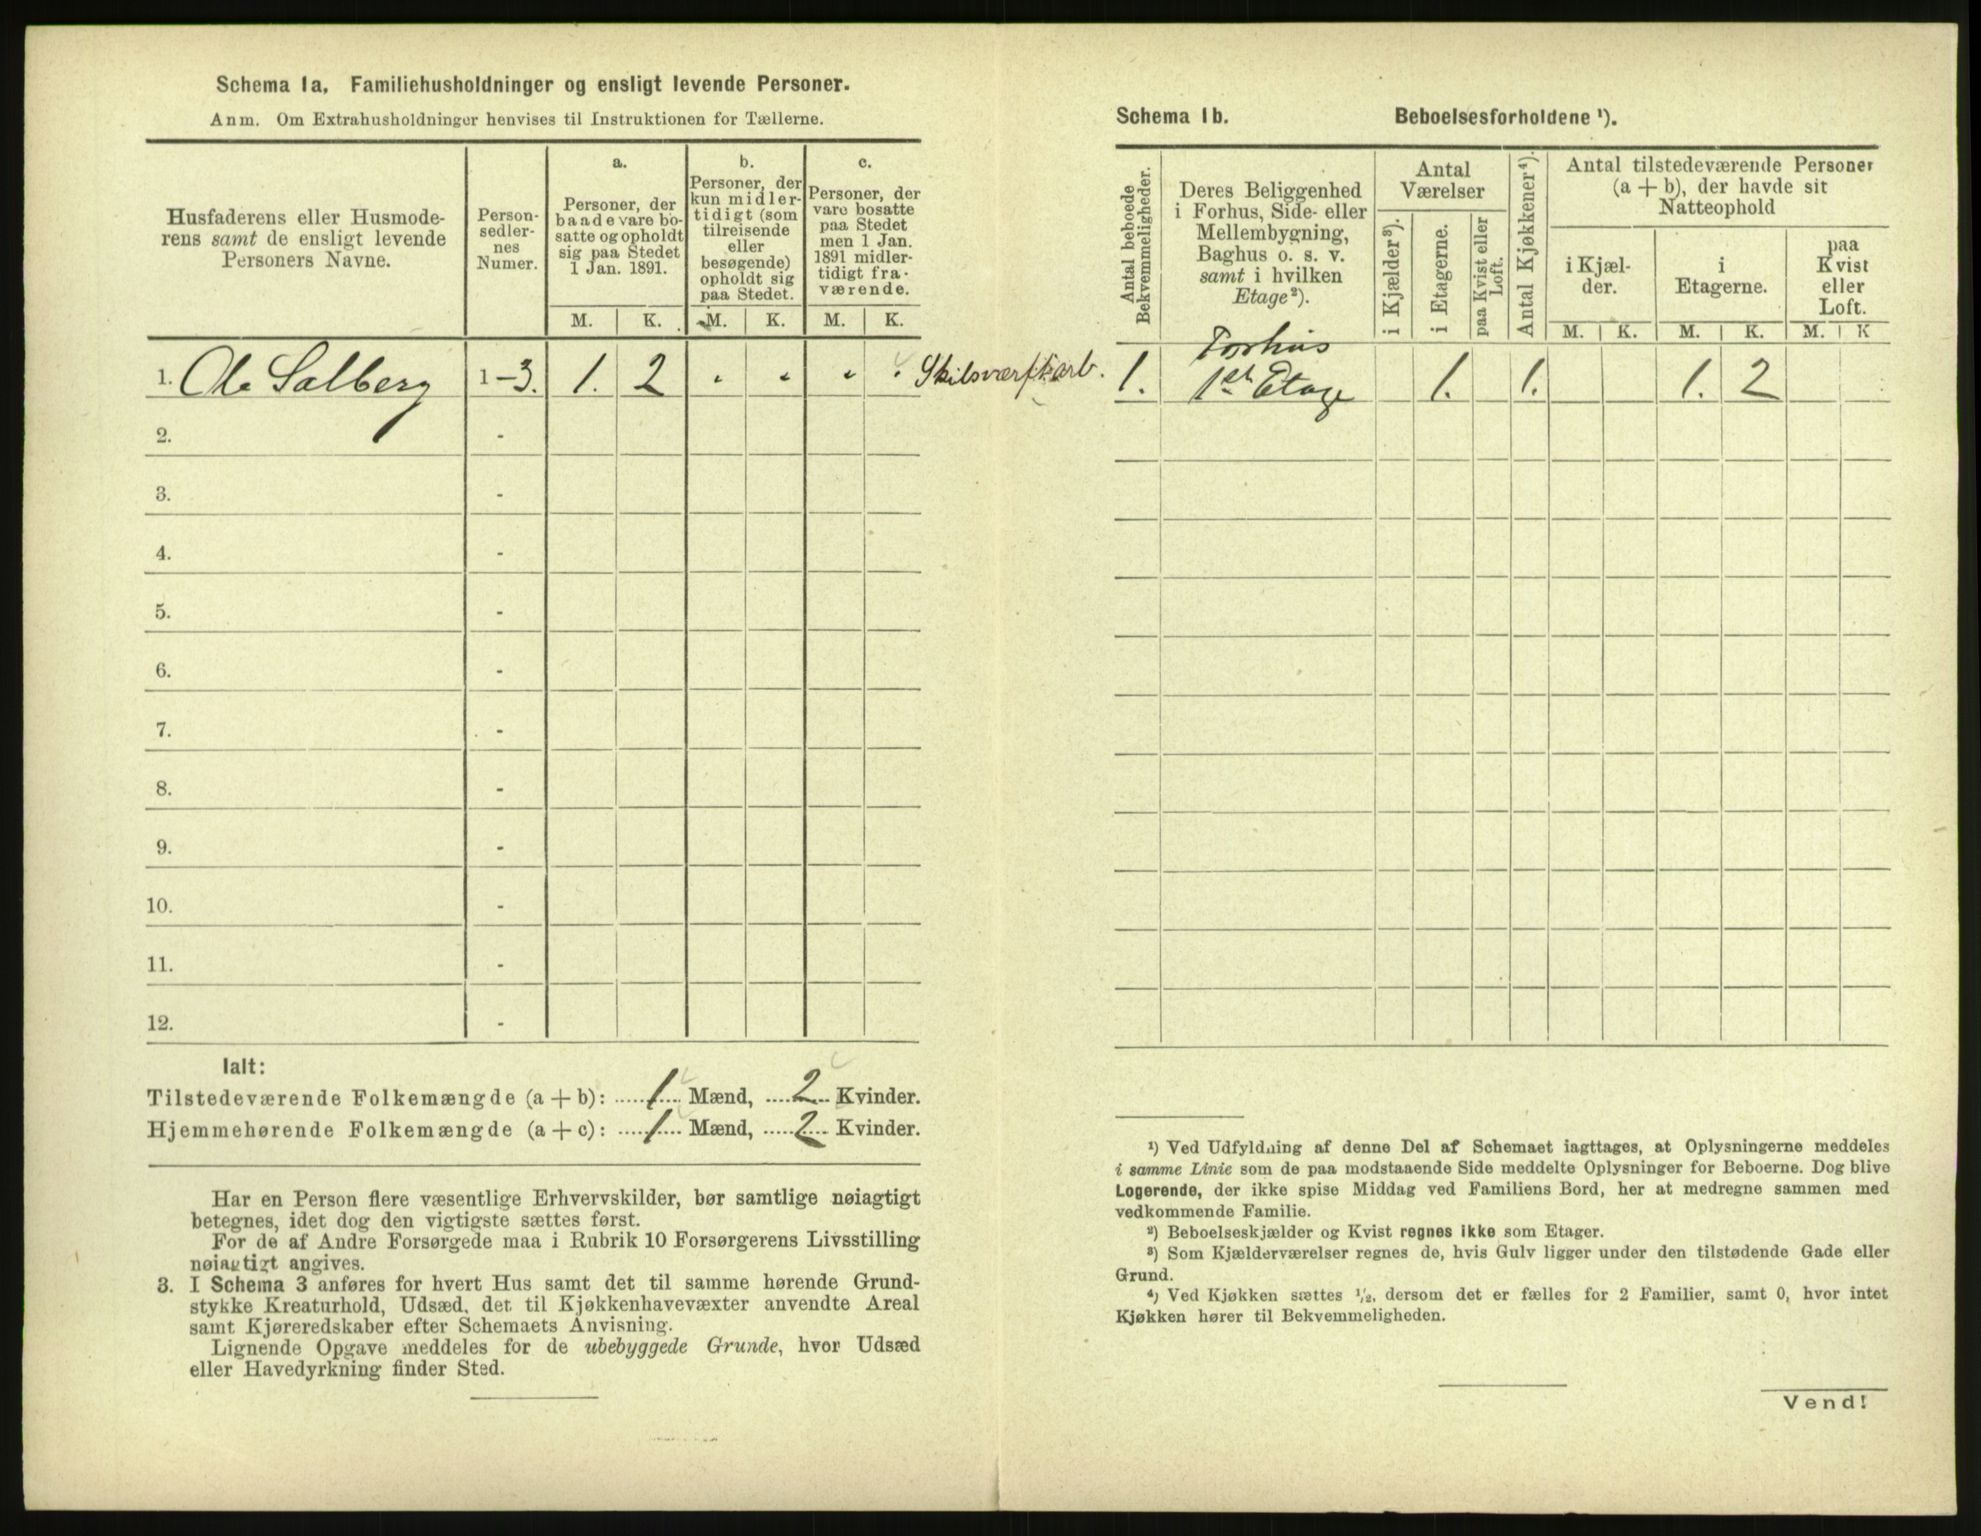 Schema 1a. Familiehusholdninger og ensligt levende Personer.
Anm. Om Extrahusholdninger henvises til Instruktionen for Tællerne.
Husfaderens eller Husmode-
rens samt de ensligt levende
Personers Navne.
Person-
sedler-
nes
Numer.
a.
Personer, der
baade vare bo-
satte og opholdt
sig paa Stedet
1 Jan. 1891.
b.
Personer, der
kun midler-
tidigt (som
tilreisende
eller
besøgende)
opholdt sig
paa Stedet.
c.
Personer, der
vare bosatte
paa Stedet
men 1 Jan.
1891 midler-
tidigt fra-
værende.
M. K. M. K. M. K.
1. Ole Salberg 1-3. 1. 2 " " " "
2. -
3. -
4. -
5. -
6. -
7. -
8. -
9. -
10. -
11. -
12. -
Ialt:
Tilstedeværende Folkemængde (a + b): 1 Mænd, 2 Kvinder.
Hjemmehørende Folkemængde (a + c): 1 Mænd, 2 Kvinder.
Har en Person flere væsentlige Erhvervskilder, bør samtlige nøiagtigt
betegnes, idet dog den vigtigste sættes først.
For de af Andre Forsørgede maa i Rubrik 10 Forsørgerens Livsstilling
nøiagtigt angives.
3. I Schema 3 anføres for hvert Hus samt det til samme hørende Grund-
stykke Kreaturhold, Udsæd, det til Kjøkkenhavevæxter anvendte Areal
samt Kjøreredskaber efter Schemaets Anvisning.
Lignende Opgave meddeles for de ubebyggede Grunde, hvor Udsæd
eller Havedyrkning finder Sted.
Schema 1b. Beboelsesforholdene ¹).
Antal beboede
Bekvemmeligheder.
Deres Beliggenhed
i Forhus, Side- eller
Mellembygning,
Baghus o. s. v.
samt i hvilken
Etage²).
Antal
Værelser
i Kjælder³).
i Etagerne.
paa Kvist eller
Loft.
Antal Kjøkkener⁴).
Antal tilstedeværende Personer
(a + b), der havde sit
Natteophold
i Kjæl-
der.
i
Etagerne.
paa
Kvist
eller
Loft.
M. K. M. K. M. K
1. Forhus
1ste Etage 1. 1. 1. 2
¹) Ved Udfyldning af denne Del af Schemaet iagttages, at Oplysningerne meddeles
i samme Linie som de paa modstaaende Side meddelte Oplysninger for Beboerne. Dog blive
Logerende, der ikke spise Middag ved Familiens Bord, her at medregne sammen med
vedkommende Familie.
²) Beboelseskjælder og Kvist regnes ikke som Etager.
³) Som Kjælderværelser regnes de, hvis Gulv ligger under den tilstødende Gade eller
Grund.
⁴) Ved Kjøkken sættes ½, dersom det er fælles for 2 Familier, samt 0, hvor intet
Kjøkken hører til Bekvemmeligheden.
Vend!